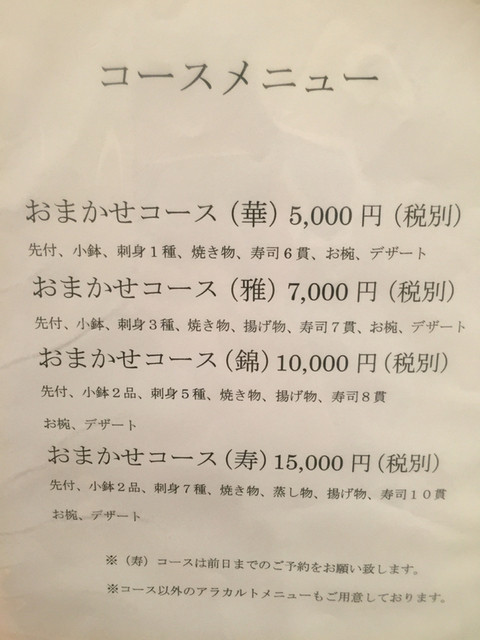 コースメニュー
おまかせコース（華）5,000 円（税別）
先付、小鉢、刺身１種、焼き物、寿司６貫、お椀、デザート
おまかせコース（雅）7,000 円（税別）
先付、小鉢、刺身３種、焼き物、揚げ物、寿司７貫、お椀、デザート
おまかせコース（錦）10,000 円（税別）
先付、小鉢２品、刺身５種、焼き物、揚げ物、寿司８貫
お椀、デザート
おまかせコース（寿）15,000 円（税別）
先付、小鉢２品、刺身７種、焼き物、蒸し物、揚げ物、寿司１０貫
お椀、デザート
※（寿）コースは前日までのご予約をお願い致します。
※コース以外のアラカルトメニューもご用意しております。